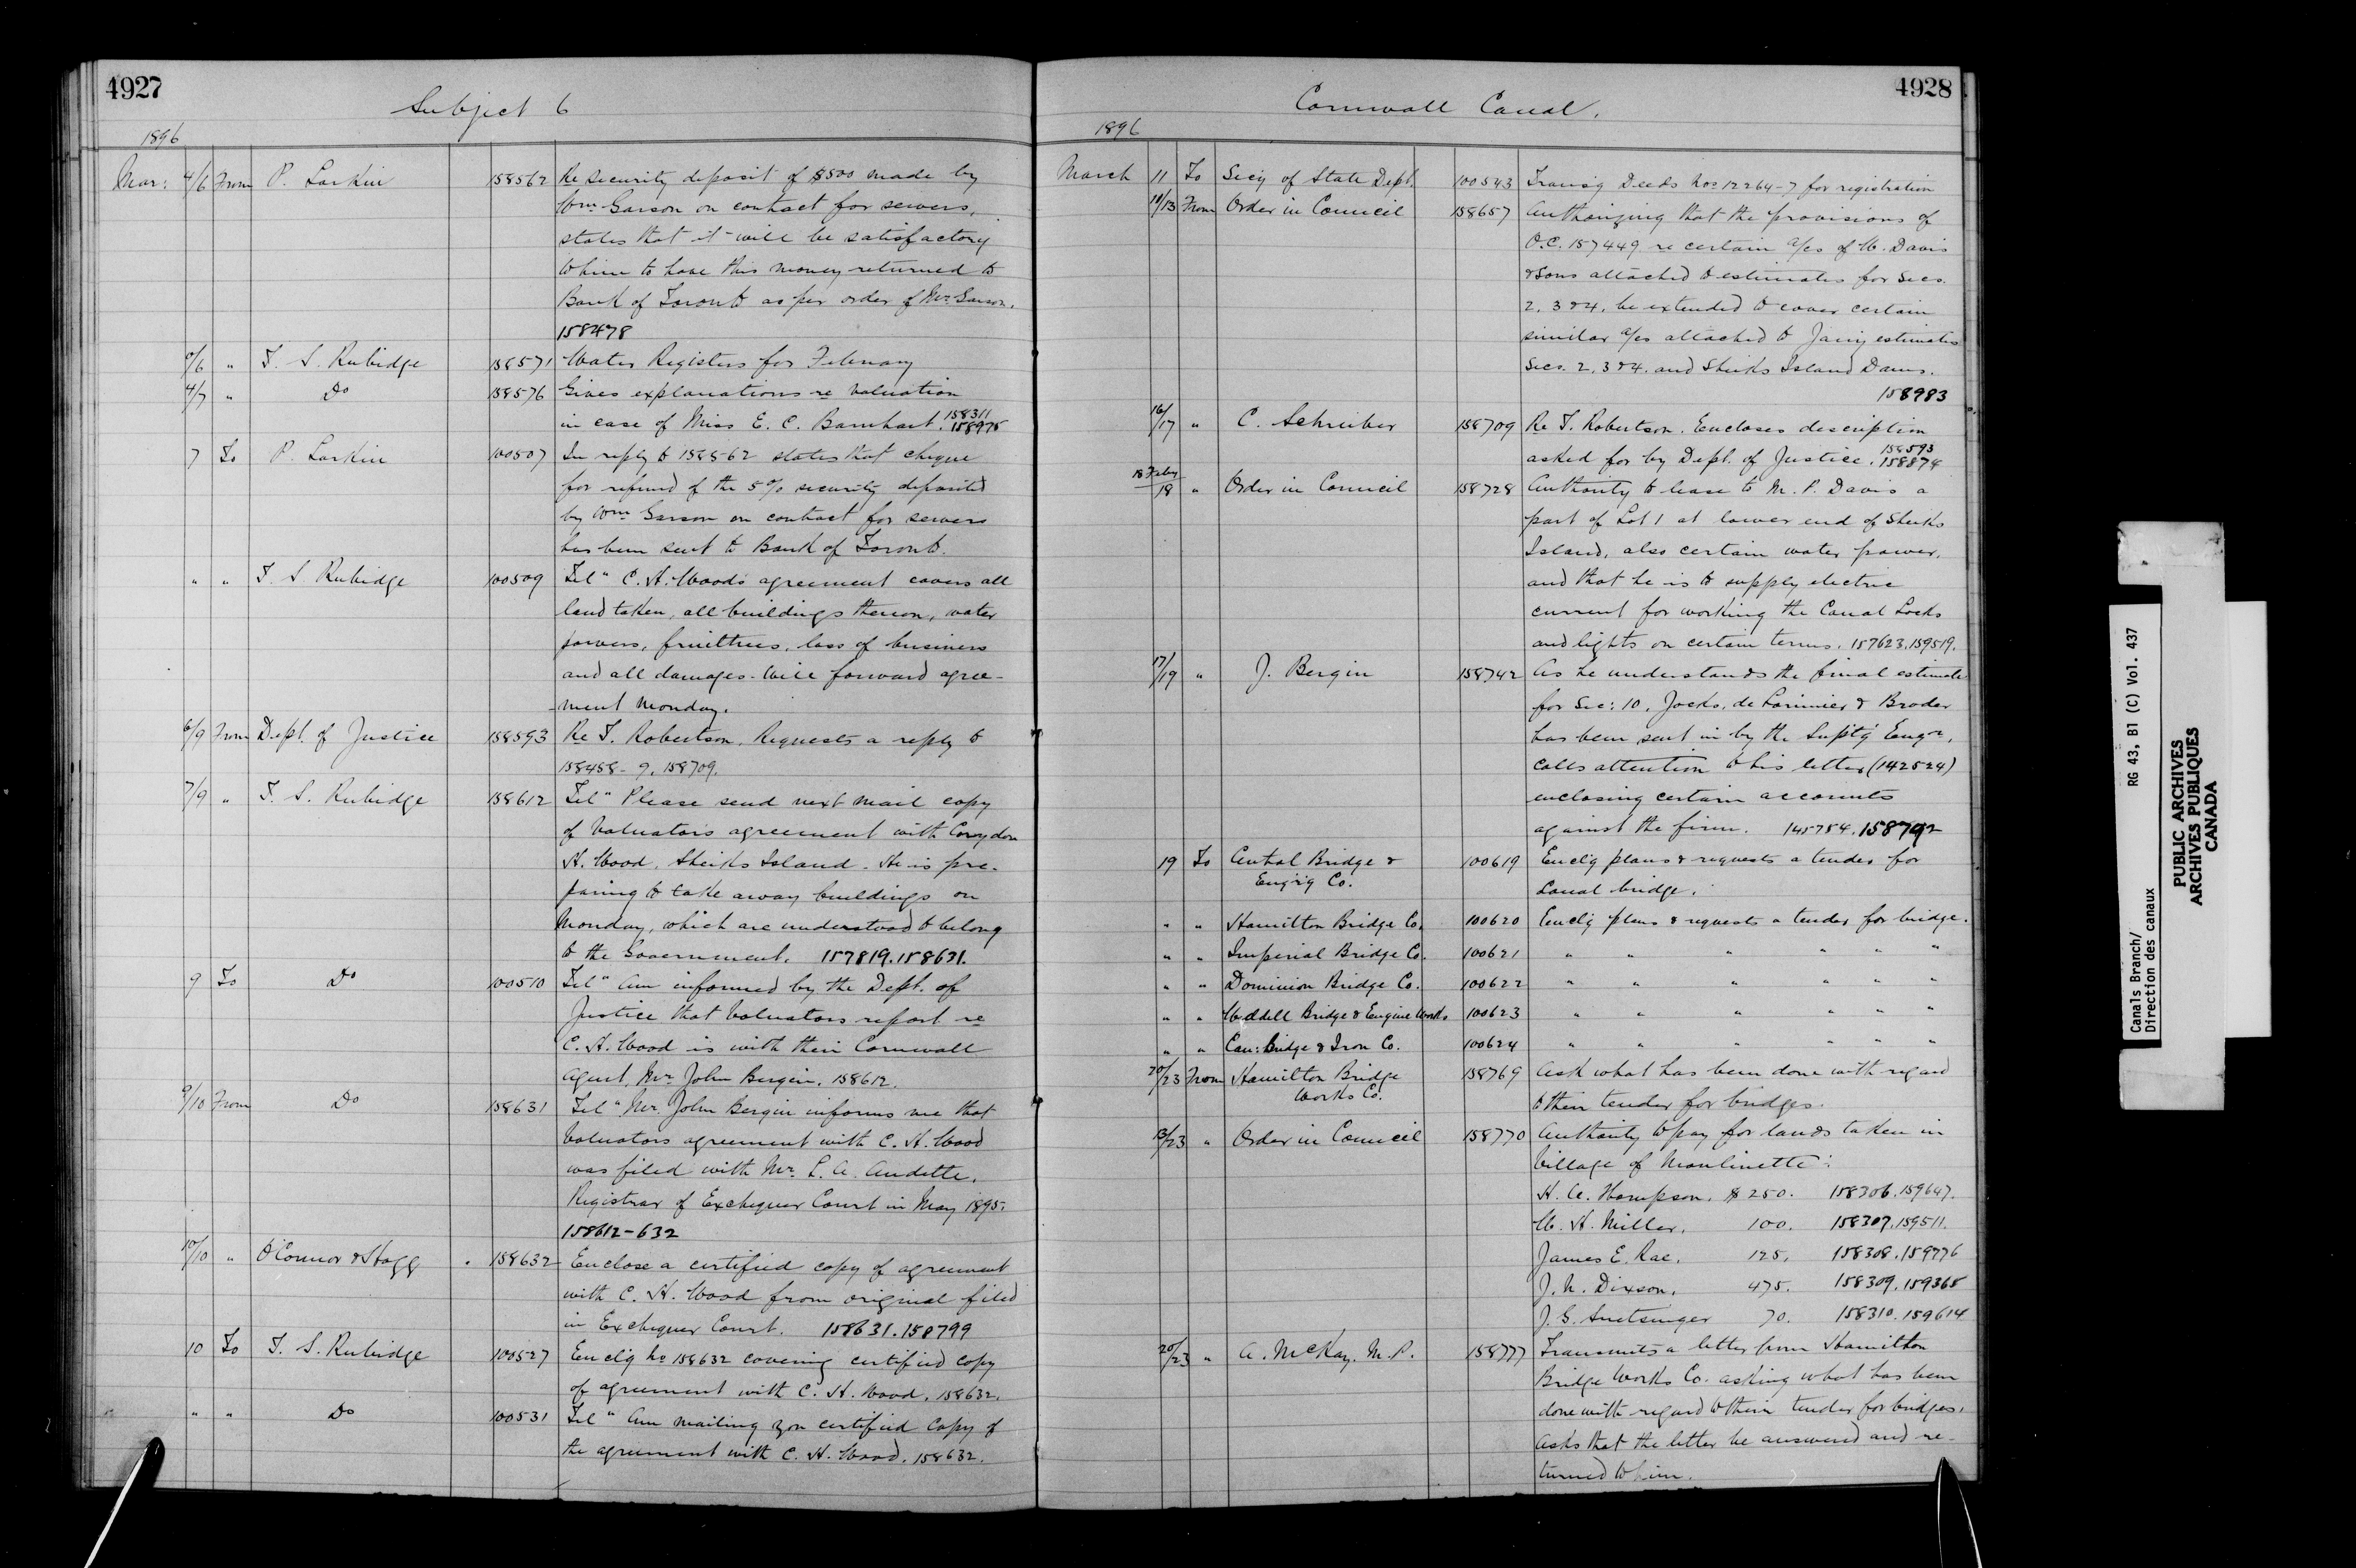 4927
Subject 6
1896
Mar: 4/6 From P. Larkin 158562 Re security deposit of $500 made by
Wm Garson on contract for sewers,
states that it will be satisfactory
to him to have this money returned to
Bank of Toronto as per order of Mr. Garson.
158478
6/6 " T. S. Rubidge 158571 Water Registers for February
4/7 " Do 158576 Gives explanations re valuation
in case of Miss E. C. Barnhart. 158311
158975
7 To P. Larkin 100507 In reply to 158562 states that cheque
for refund of the 5% security deposited
by Wm Garson on contract for sewers
has been sent to Bank of Toronto.
" " T. S. Rubidge 100509 Tel" C. H. Wood's agreement covers all
land taken, all buildings thereon, water
powers, fruittrees, loss of business
and all damages. Will forward agree-
ment Monday.
6/9 From Dept. of Justice 158593 Re T. Robertson. Requests a reply to
158458-9. 158709.
7/9 " T. S. Rubidge 158612 Tel" Please send next mail copy
of Valuators agreement with Croydon
H. Wood, Sheiks Island. He is pre-
paring to take away buildings on
Monday, which are understood to belong
to the Government. 157819.158631.
9 To Do 100510 Tel" Am informed by the Dept. of
Justice that Valuators report re
C. H. Wood is with their Cornwall
agent, Mr. John Bergin. 158612.
9/10 From Do 158631 Tel" Mr. John Bergin informs me that
Valuators agreement with C. H. Wood
was filed with Mr. L. A. Audette,
Registrar of Exchequer Court in May 1895.
158612-632
10/10 " O'Connor & Hogg 158632 Enclose a certified copy of agreement
with C. H. Wood from original filed
in Exchequer Court. 158631.158799
10 To T. S. Rubidge 100527 Enclg No 158632 covering certified copy
of agreement with C. H. Wood. 158632.
" " Do 100531 Tel" Am mailing you certified copy of
the agreement with C. H. Wood. 158632.
4928
Cornwall Canal.
1896
March 11 To Secy of State Dept. 100543 Transg Deeds Nos 12264-7 for registration
11/13 From Order in Council 158657 Authorizing that the provisions of
O.C. 157449 re certain a/cs of W. Davis
& Sons attached to estimates for Secs.
2, 3 & 4, be extended to cover certain
similar a/cs attached to Jany estimates
Secs. 2, 3 & 4. and Sheiks Island Dams.
158983
16/17 " C. Schreiber 158709 Re T. Robertson. Encloses description
asked for by Dept. of Justice. 158593
158874
18 Feby/18 " Order in Council 158728 Authority to lease to M. P. Davis a
part of Lot 1 at lower end of Sheiks
Island, also certain water power,
and that he is to supply electric
current for working the Canal Locks
and lights on certain terms. 157623.159519.
17/19 " J. Bergin 158742 As he understands the final estimate
for Sec: 10, Jocks, de Lorimier & Broder
has been sent in by the Suptg Engr,
calls attention to his letter (142524)
enclosing certain accounts
against the firm. 145754.158792
19 To Central Bridge & 100619 Enclg plans & requests a tender for
Eng'r'g Co. Canal bridge.
" " Hamilton Bridge Co. 100620 Enclg plans & requests a tender for bridge.
" " Imperial Bridge Co. 100621 " " " " " "
" " Dominion Bridge Co. 100622 " " " " " "
" " Weddell Bridge & Engine Works 100623 " " " " " "
" " Can: Bridge & Iron Co. 100624 " " " " " "
20/23 From Hamilton Bridge 158769 Ask what has been done with regard
Works Co. to their tender for bridges.
13/23 " Order in Council 158770 Authority to pay for lands taken in
Village of Moulinette:
H. A. Thompson, $250. 158306.159647.
W. H. Miller, 100. 158307.159511.
James E. Rae, 125. 158308.159776
J. N. Dixson, 475. 158309.159365
J. G. Snetsinger 70. 158310.159614
20/23 " A. McKay. M.P. 158777 Transmits a letter from Hamilton
Bridge Works Co. asking what has been
done with regard to their tender for bridges.
Asks that the letter be answered and re-
turned to him.
Canals Branch/
Direction des canaux
RG 43, B1 (C) Vol. 437
PUBLIC ARCHIVES
ARCHIVES PUBLIQUES
CANADA